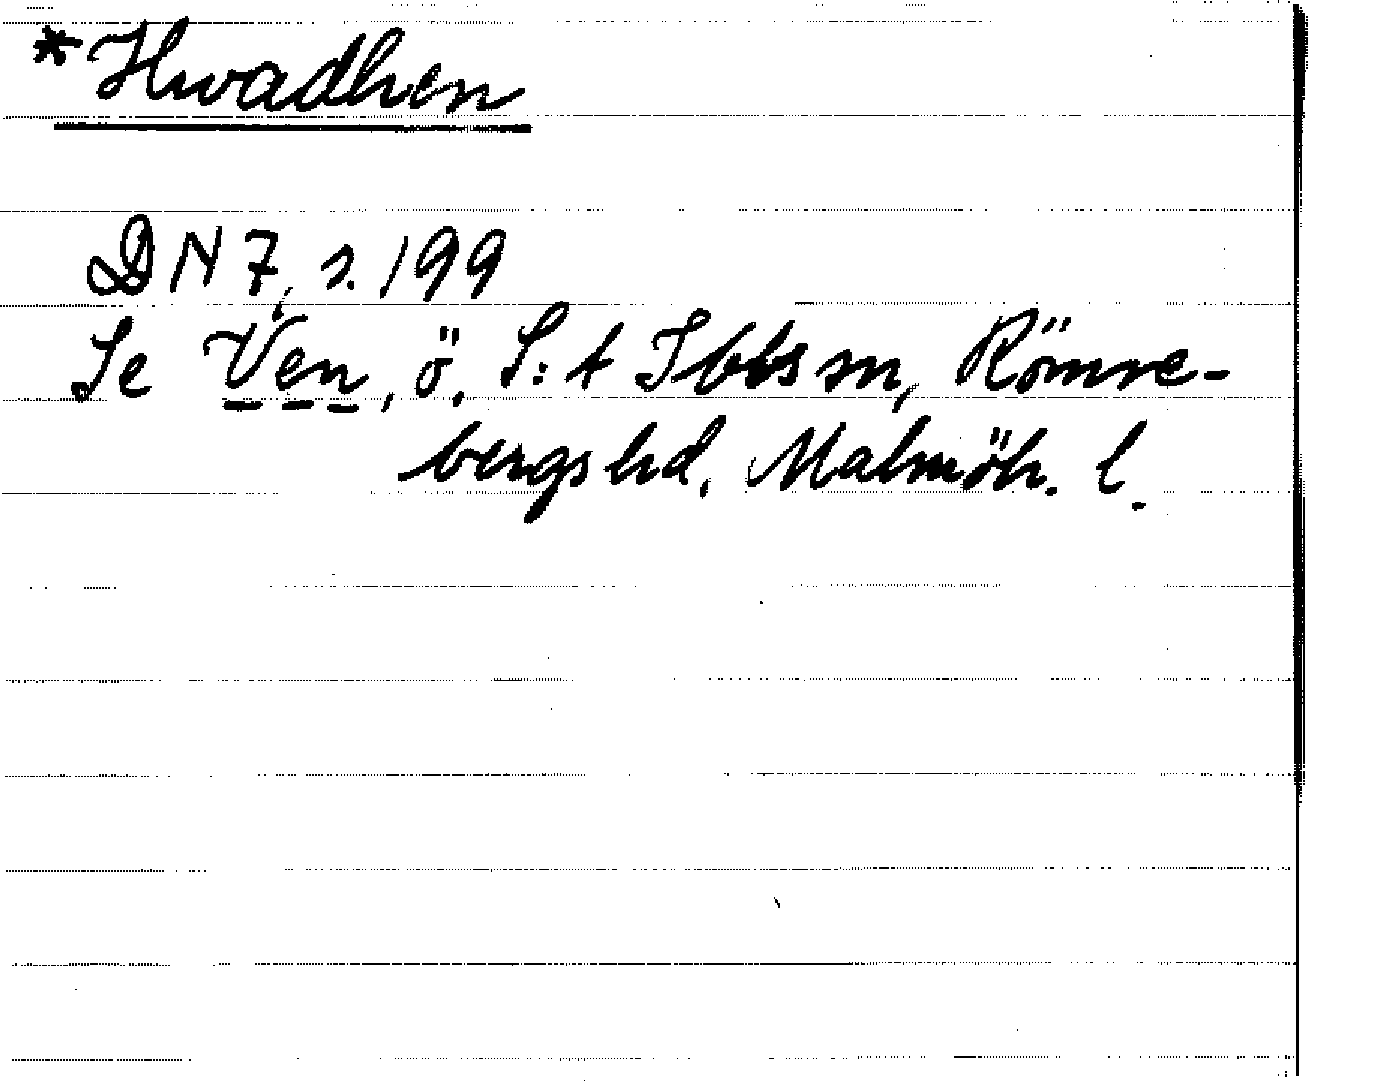 *Hwadhen
DN 7, s. 199
Se Ven, ö, S:t Ibbs sn, Rönne-
bergs hd, Malmöh. l.